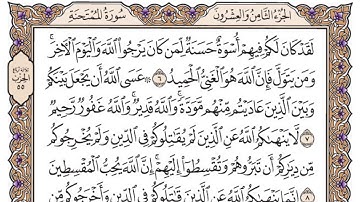 الجزء الثامن والعشرون
سورة الممتحنة
لَقَدْ كَانَ لَكُمْ فِيهِمْ أُسْوَةٌ حَسَنَةٌ لِّمَن كَانَ يَرْجُوا۟ ٱللَّهَ وَٱلْيَوْمَ ٱلْءَاخِرَ ۚ
وَمَن يَتَوَلَّ فَإِنَّ ٱللَّهَ هُوَ ٱلْغَنِىُّ ٱلْحَمِيدُ ٦ ۞ عَسَى ٱللَّهُ أَن يَجْعَلَ بَيْنَكُمْ
وَبَيْنَ ٱلَّذِينَ عَادَيْتُم مِّنْهُم مَّوَدَّةً ۚ وَٱللَّهُ قَدِيرٌ ۚ وَٱللَّهُ غَفُورٌ رَّحِيمٌ
٧ لَّا يَنْهَىٰكُمُ ٱللَّهُ عَنِ ٱلَّذِينَ لَمْ يُقَٰتِلُوكُمْ فِى ٱلدِّينِ وَلَمْ يُخْرِجُوكُم
مِّن دِيَٰرِكُمْ أَن تَبَرُّوهُمْ وَتُقْسِطُوٓا۟ إِلَيْهِمْ ۚ إِنَّ ٱللَّهَ يُحِبُّ ٱلْمُقْسِطِينَ
٨ إِنَّمَا يَنْهَىٰكُمُ ٱللَّهُ عَنِ ٱلَّذِينَ قَٰتَلُوكُمْ فِى ٱلدِّينِ وَأَخْرَجُوكُم مِّن
الحزب
٥٥